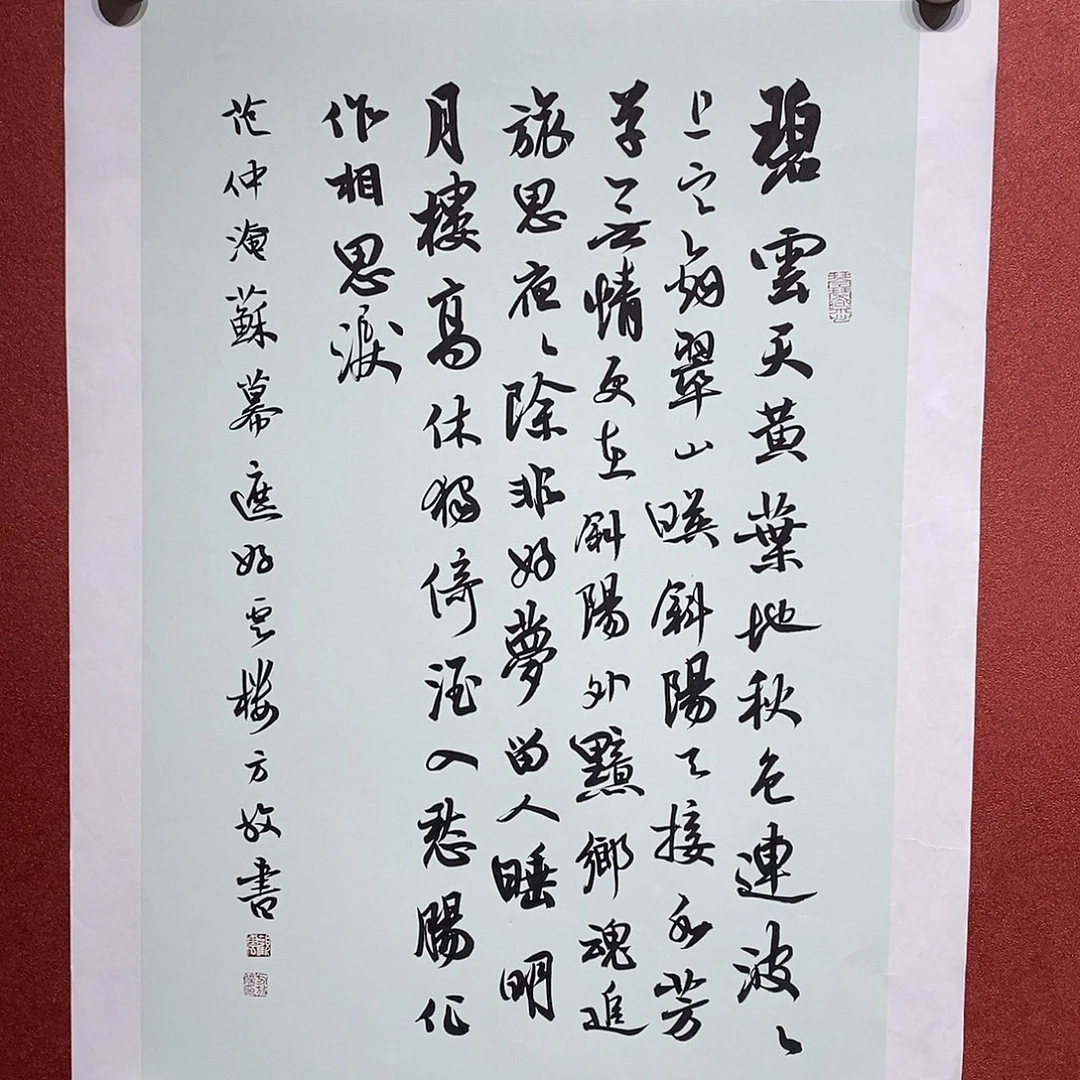 碧雲天黄葉地秋色連波〻
上寒烟翠山暎斜陽天接水芳
草無情更在斜陽外黯鄉魂追
旅思夜〻除非好夢留人睡明
月樓高休獨倚酒入愁腸化
作相思淚
范仲淹蘇幕遮好雲楼方放書